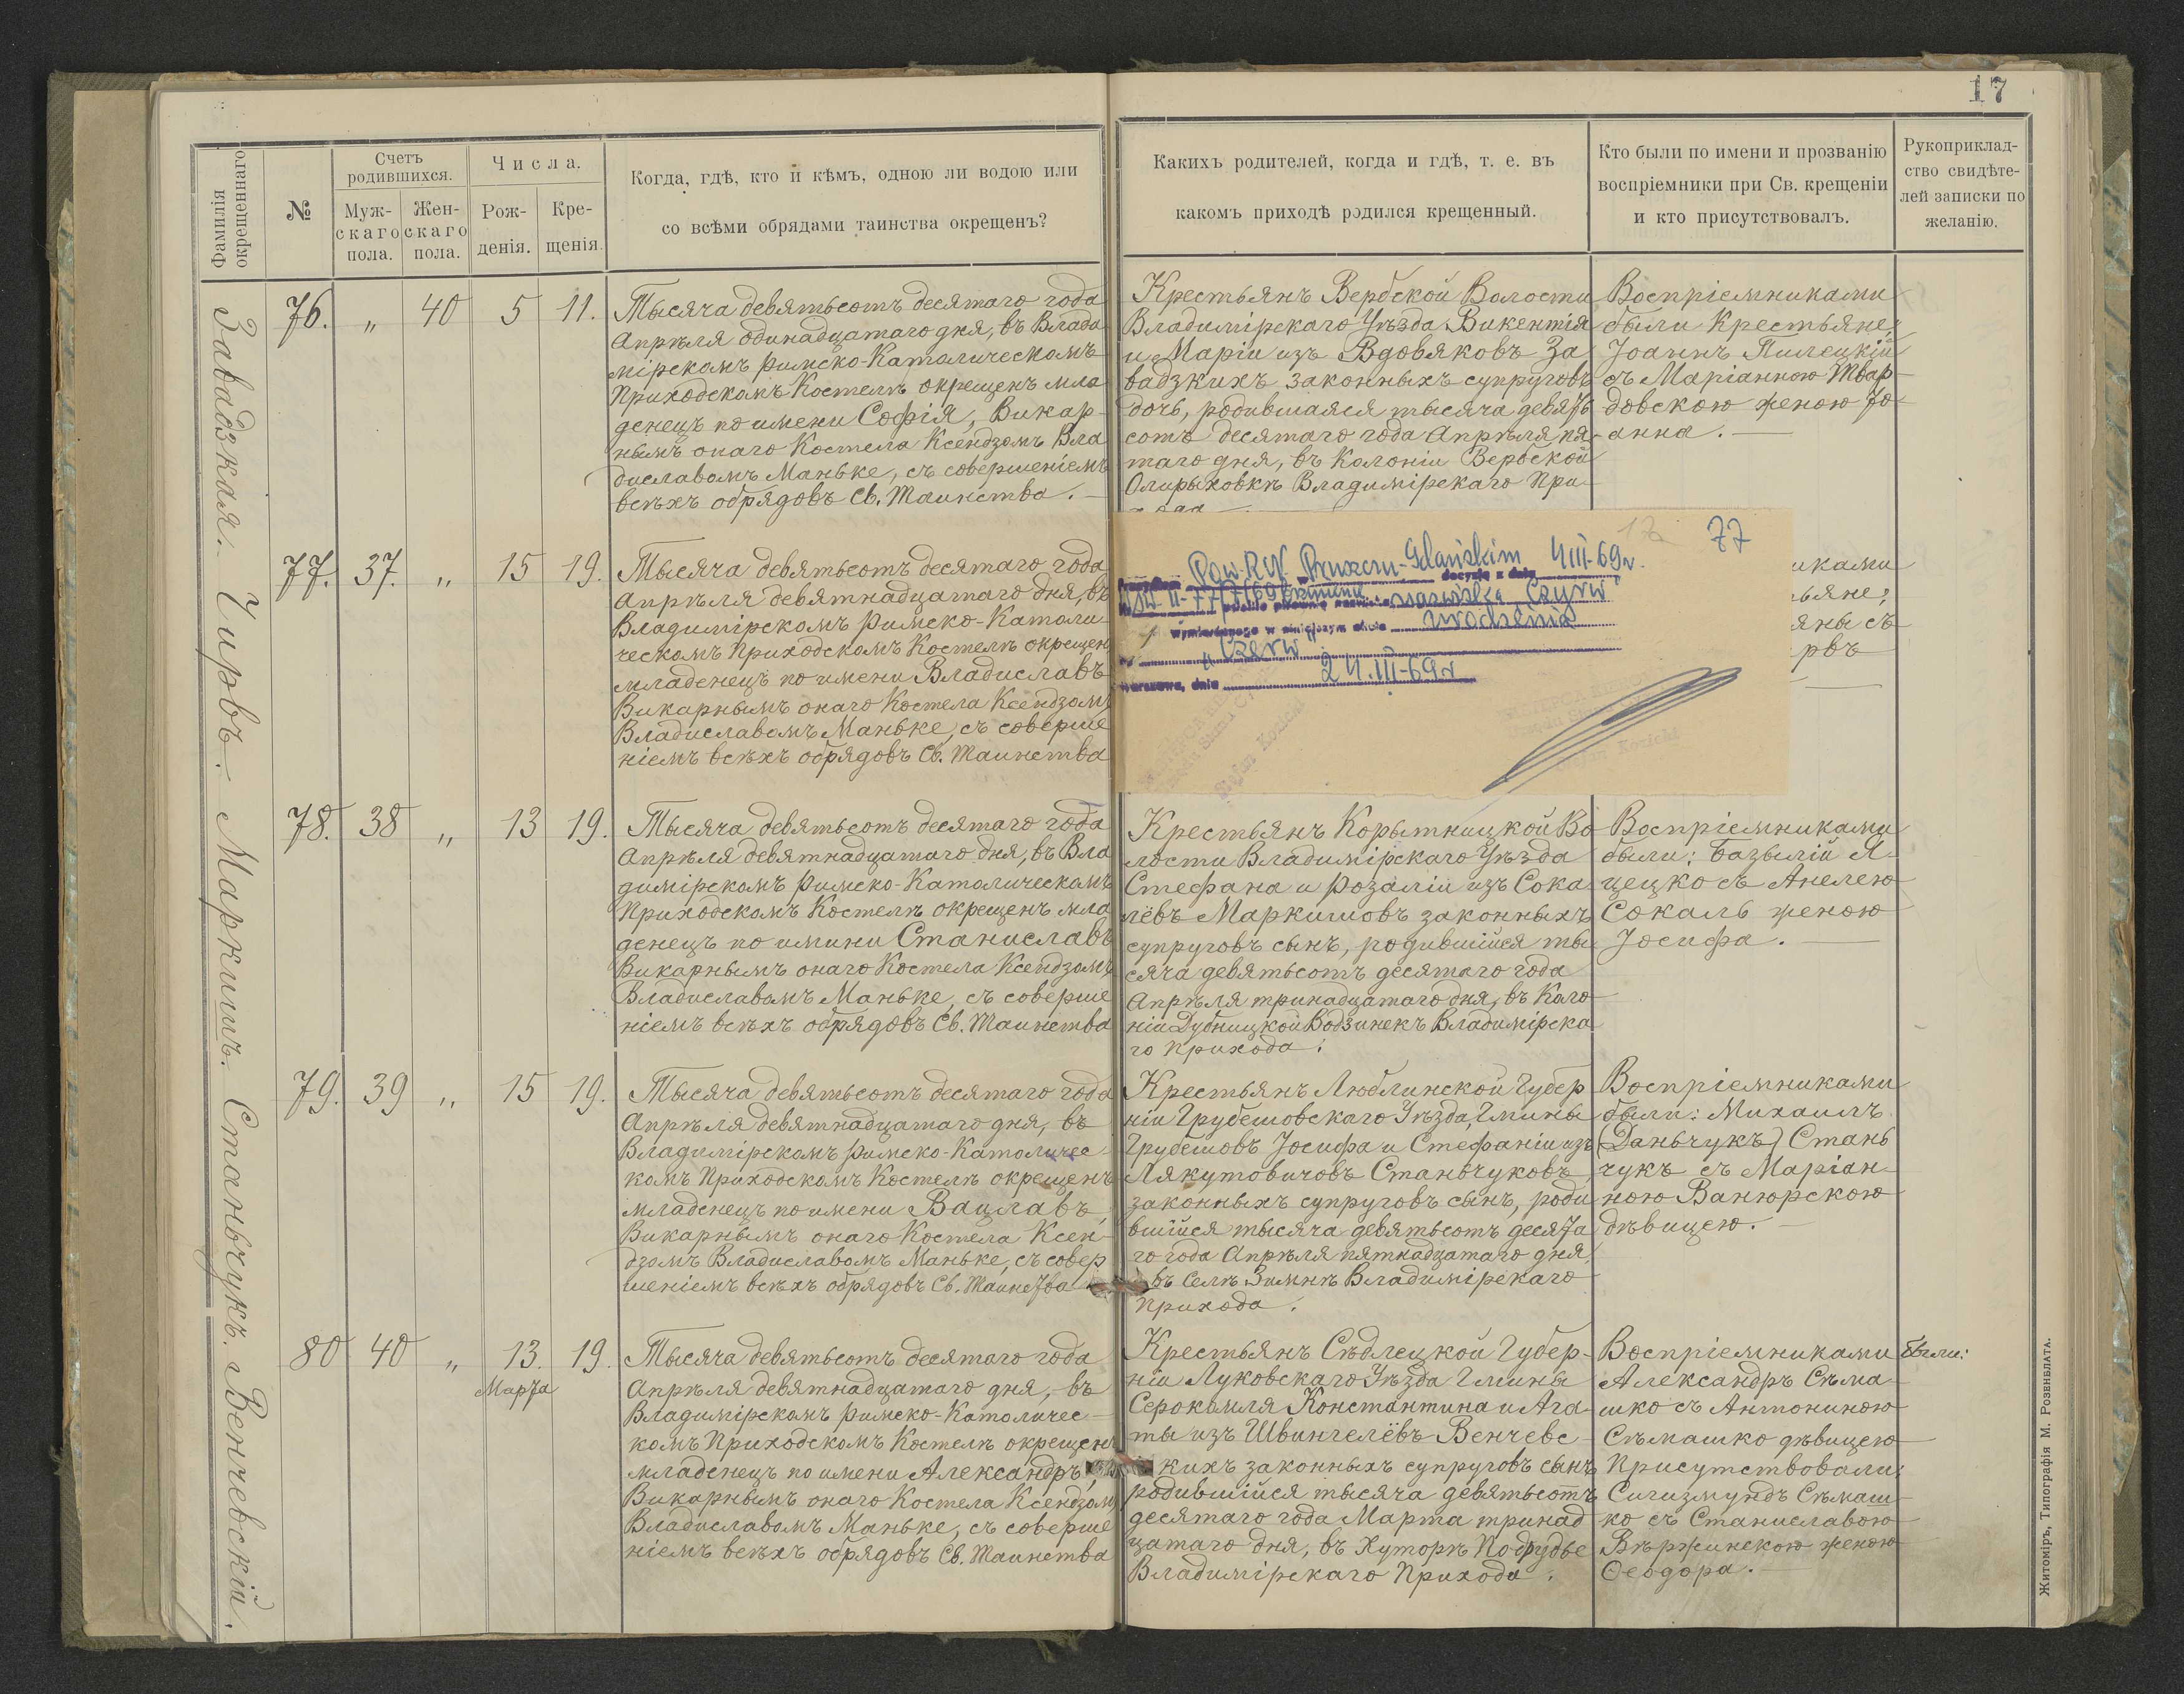 17
Фамилія
окрещеннаго
№
Счетъ
родившихся.
Муж-
скаго
пола.
Жен-
скаго
пола.
Числа.
Рож-
денія.
Кре-
щенія.
Когда, гдѣ, кто и кѣмъ, одною ли водою или
со всѣми обрядами таинства окрещенъ?
Какихъ родителей, когда и гдѣ, т. е. въ
какомъ приходѣ родился крещенный.
Кто были по имени и прозванію
воспріемники при Св. крещеніи
и кто присутствовалъ.
Рукоприклад-
ство свидѣте-
лей записки по
желанію.
Завадзкая.
76. „ 40 5 11.
Тысяча девятьсотъ десятаго года
Апрѣля одинадцатаго дня, въ Влади
мірскомъ Римско-Католическомъ
Приходскомъ Костелѣ окрещенъ мла
денецъ по имени Софія, Викар-
нымъ онаго Костела Ксендзомъ Вла
диславомъ Маньке, съ совершеніемъ
всѣхъ обрядовъ Св. Таинства.
Крестьянъ Вербской Волости
Владимірскаго Уѣзда Викентія
и Маріи изъ Вдовяковъ За
вадзкихъ законныхъ супруговъ
дочь, родившаяся тысяча девять
сотъ десятаго года Апрѣля пя
таго дня, въ Колоніи Вербской
Владимірскаго При
Воспріемниками
были Крестьяне:
Іоаннъ Пилецкій
съ Маріанною Твар
довскою женою Іо
анна.
Чирвъ.
77. 37. „ 15 19.
Тысяча девятьсотъ десятаго года
Апрѣля девятнадцатаго дня, въ
Владимірскомъ Римско-Католи
ческомъ Приходскомъ Костелѣ окрещенъ
младенецъ по имени Владиславъ
Викарнымъ онаго Костела Ксендзомъ
Владиславомъ Маньке, съ соверше
ніемъ всѣхъ обрядовъ Св. Таинства
77
Pow. R.N. w Pruszczu-Gdańskim decyzją z dnia 4 III-69r.
nazwiska "Czyrw"
wymienionego w niniejszym akcie urodzenia
"Czerw"
Warszawa, dnia 24.III-69r
иками
ьяне;
яны съ
рвъ
Маркишъ.
78. 38 „ 13 19.
Тысяча девятьсотъ десятаго года
Апрѣля девятнадцатаго дня, въ Вла
димірскомъ Римско-Католическомъ
Приходскомъ Костелѣ окрещенъ мла
денецъ по имини Станиславъ
Викарнымъ онаго Костела Ксендзомъ
Владиславомъ Маньке, съ соверше
ніемъ всѣхъ обрядовъ Св. Таинства
Крестьянъ Корытницкой Во
лости Владимірскаго Уѣзда
Стефана и Розаліи изъ Сока
лёвъ Маркишовъ законныхъ
супруговъ сынъ, родившійся ты
сяча девятьсотъ десятаго года
Апрѣля тринадцатаго дня, въ Коло
ніи Дубницкой Водзинекъ Владимірска
го Прихода.
Воспріемниками
были: Базылій Я
цецко съ Анелею
Сокаль женою
Іосифа.
Станьчукъ.
79. 39 „ 15 19.
Тысяча девятьсотъ десятаго года
Апрѣля девятнадцатаго дня, въ
Владимірскомъ Римско-Католичес
комъ Приходскомъ Костелѣ окрещенъ
младенецъ по имени Вацлавъ,
Викарнымъ онаго Костела Ксен-
дзомъ Владиславомъ Маньке, съ совер
шеніемъ всѣхъ обрядовъ Св. Таинства
Крестьянъ Люблинской Губер
ніи Грубешовскаго Уѣзда, Гмины
Грубешовъ Іосифа и Стефаніи изъ
Лякутовичовъ Станьчуковъ,
законныхъ супруговъ сынъ, роди
вшійся тысяча девятьсотъ десята
го года Апрѣля пятнадцатаго дня,
въ Селѣ Зимнѣ Владимірскаго
Прихода.
Воспріемниками
были: Михаилъ
(Даньчукъ) Стань
чукъ съ Маріан
ною Ванюрскою
дѣвицею.
Венчевскій.
80 40 „ 13. 19.
Марта
Тысяча девятьсотъ десятаго года
Апрѣля девятнадцатаго дня, въ
Владимірскомъ Римско-Католичес
комъ Приходскомъ Костелѣ окрещенъ
младенецъ по имени Александръ,
Викарнымъ онаго Костела Ксендзом
Владиславомъ Маньке, съ соверше
ніемъ всѣхъ обрядовъ Св. Таинства
Крестьянъ Сѣдлецкой Губер-
ніи Луковскаго Уѣзда Гмины
Серокомля Константина и Ага-
ты изъ Швингелёвъ Венчевс
кихъ законныхъ супруговъ сынъ
родившійся тысяча девятьсотъ
десятаго года Марта тринад
цатаго дня, въ Хуторѣ Подрудье
Владимірскаго Прихода.
Воспріемниками были:
Александръ Сѣма
шко съ Антониною
Сѣмашко дѣвицею
Присутствовали:
Сигизмундъ Сѣмаш
ко съ Станиславою
Вѣржинскою женою
Ѳеодора.
Житоміръ, Типографія М. Розенблата.